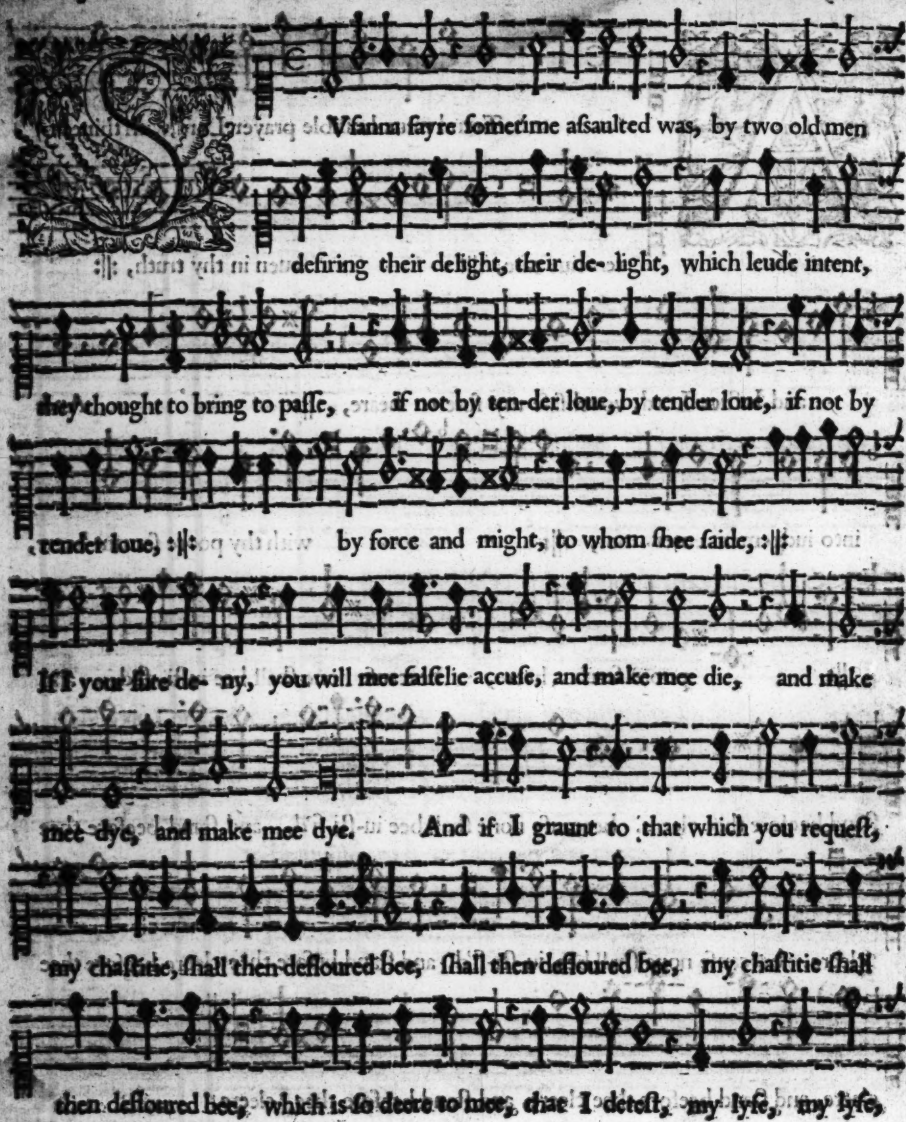 SVsanna fayre sometime assaulted was, by two old men
desiring their delight, their de- light, which leude intent,
they thought to bring to passe, if not by ten-der loue, by tender loue, if not by
tender loue, :||: by force and might, to whom shee saide, :||:
If I your sute de- ny, you will mee falselie accuse, and make mee die, and make
mee dye, and make mee dye. And if I graunt to that which you request,
my chastitie, shall then defloured bee, shall then defloured bee, my chastitie shall
then defloured bee, which is so deere to mee, that I detest, my lyfe, my lyfe,